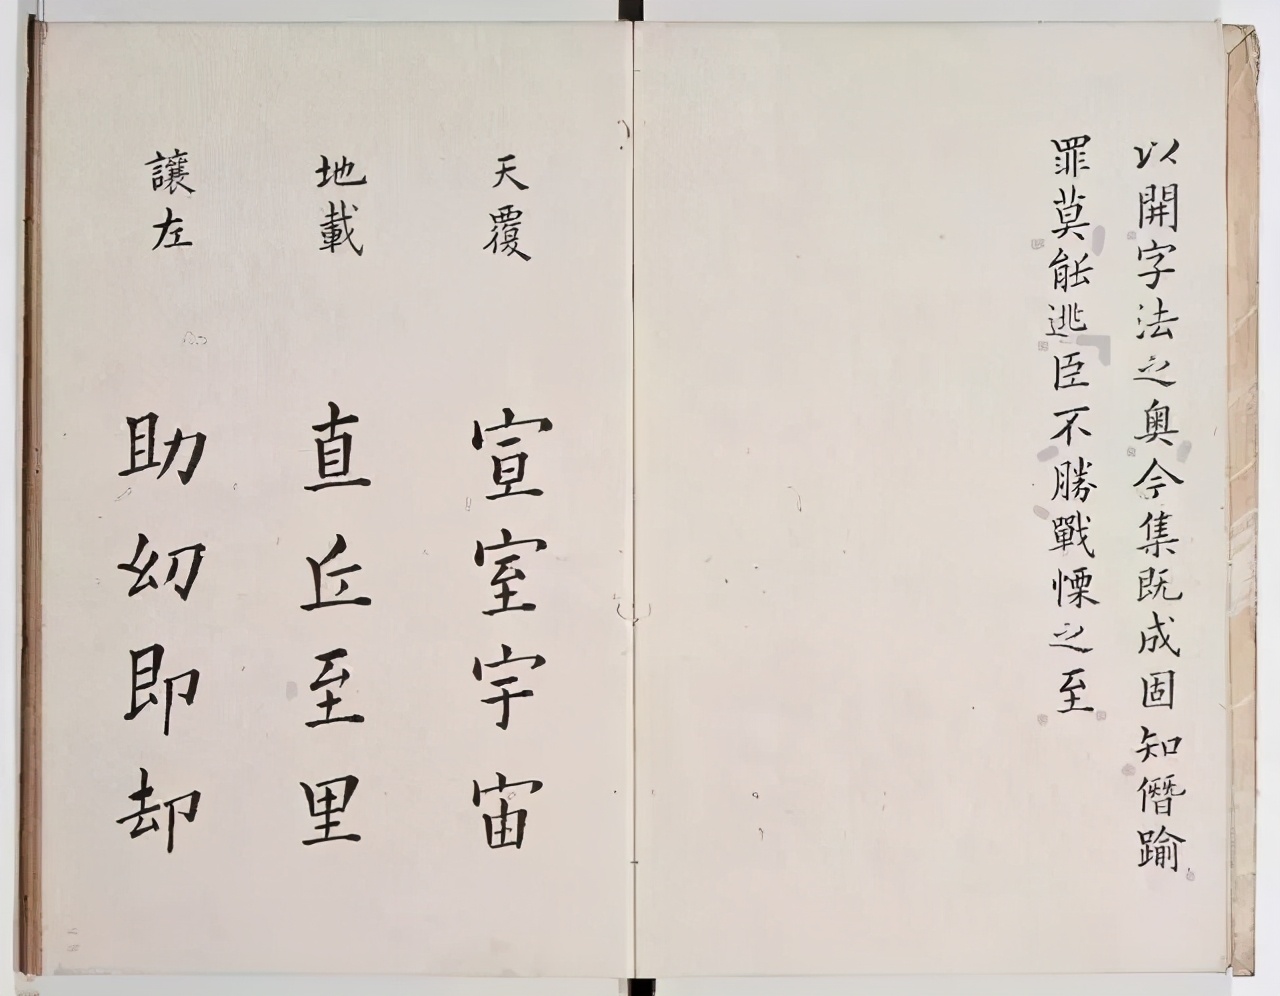 以開字法之奥今集既成固知僭踰
罪莫能逃臣不勝戰慄之至
天覆
宣室宇宙
地載
直丘至里
讓左
助幼即却